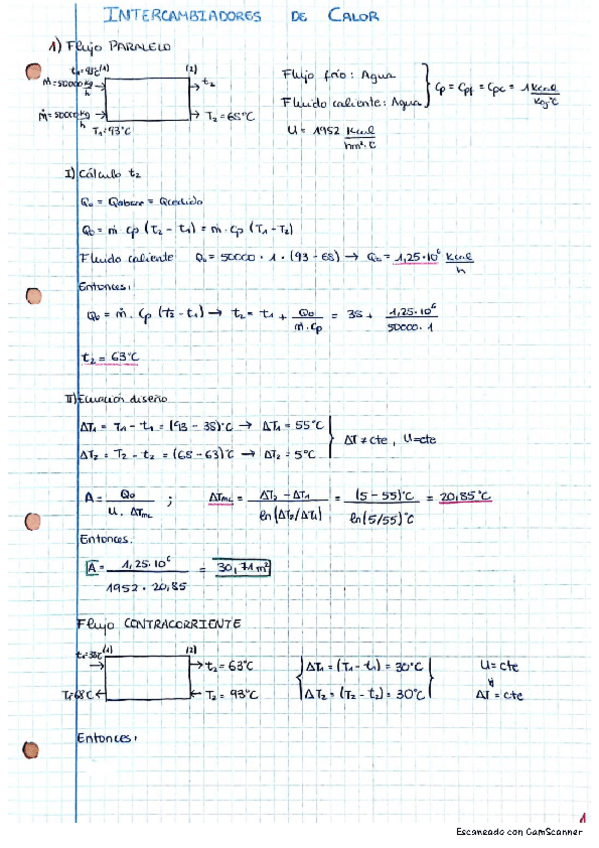 INTERCAMBIADORES DE CALOR
1) Flujo PARALELO
(1) (2)
ṁ=50000 kg/h t₂
ṁ=50000 kg/h T₂=68°C
T₁=93°C
Flujo frío: Agua
Fluido caliente: Agua
Cp = Cpf = Cpc = 1 kcal/kg·°C
U = 1952 kcal/hm²·°C
I) Cálculo t₂
Q₀ = Qabsor = Qcedido
Q₀ = ṁ · cp (T₂ - t₁) = ṁ · cp (T₁ - T₂)
Fluido caliente Q₀ = 50000 · 1 · (93 - 68) → Q₀ = 1,25·10⁶ kcal/h
Entonces:
Q₀ = ṁ · Cp (t₂ - t₁) → t₂ = t₁ + Q₀/ṁ·Cp = 38 + 1,25·10⁶/50000·1
t₂ = 63°C
II) Ecuación diseño
ΔT₁ = T₁ - t₁ = (93 - 38)°C → ΔT₁ = 55°C
ΔT₂ = T₂ - t₂ = (68 - 63)°C → ΔT₂ = 5°C
ΔT ≠ cte, U=cte
A = Q₀/U · ΔTmL ; ΔTmL = ΔT₂ - ΔT₁/ln(ΔT₂/ΔT₁) = (5 - 55)°C/ln(5/55)°C = 20,85°C
Entonces.
A = 1,25·10⁶/1952 · 20,85 = 30,71 m²
Flujo CONTRACORRIENTE
t₁=38°C (1) (2) t₂ = 63°C
T₁=68°C T₂ = 93°C
ΔT₁ = (T₁ - t₁) = 30°C
ΔT₂ = (T₂ - t₂) = 30°C
U = cte
y
ΔT = cte
Entonces:
1
Escaneado con CamScanner